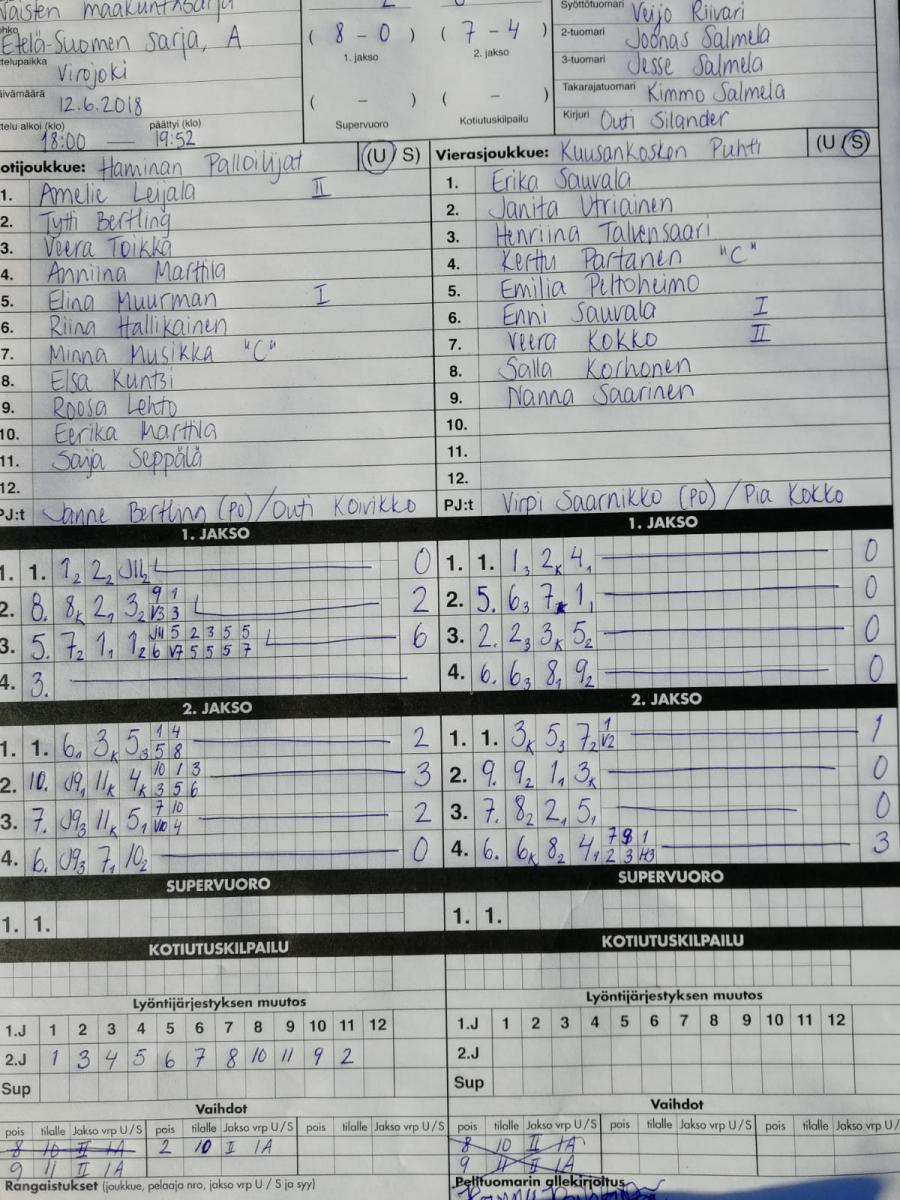 Naisten maakuntasarja
Etelä-Suomen sarja, A
Virojoki
12.6.2018
telu alkoi (klo) päättyi (klo)
18:00 — 19:52
( 8 - 0 ) ( 7 - 4 )
1. jakso 2. jakso
( - ) ( - )
Supervuoro Kotiutuskilpailu
Syöttötuomari Veijo Riivari
2-tuomari Joonas Salmela
3-tuomari Jesse Salmela
Takarajatuomari Kimmo Salmela
Kirjuri Outi Silander
otijoukkue: Haminan Palloilijat (U S)
1. Amelie Leijala II
2. Tytti Bertling
3. Veera Toikka
4. Anniina Marttila
5. Elina Muurman I
6. Riina Hallikainen
7. Minna Musikka "C"
8. Elsa Kuntsi
9. Roosa Lehto
10. Eerika Marttila
11. Saija Seppälä
12.
PJ:t Janne Bertling (PO) / Outi Koivikko
Vierasjoukkue: Kuusankosken Puhti (U S)
1. Erika Sauvala
2. Janita Utriainen
3. Henriina Talvensaari
4. Kerttu Partanen "C"
5. Emilia Peltoheimo
6. Enni Sauvala I
7. Veera Kokko II
8. Salla Korhonen
9. Nanna Saarinen
10.
11.
12.
PJ:t Virpi Saarnikko (PO) / Pia Kokko
1. JAKSO
1. 1. 1₂ 2₂ J11₂ 0
2. 8. 8ₖ 2₁ 3₂ 9 1 2
V3 3
3. 5. 7₂ 1₁ 1₂ J11 5 2 3 5 5 6
6 V7 5 5 5 7
4. 3.
1. JAKSO
1. 1. 1₃ 2ₖ 4₁ 0
2. 5. 6₃ 7ₖ 1₁ 0
3. 2. 2₃ 3ₖ 5₂ 0
4. 6. 6₃ 8₁ 9₂ 0
2. JAKSO
1. 1. 6₁ 3ₖ 5₃ 1 4 2
5 8
2. 10. J9₁ 11ₖ 4ₖ 10 1 3 3
3 5 6
3. 7. J9₃ 11ₖ 5₁ 7 10 2
V10 4
4. 6. J9₃ 7₁ 10₂ 0
2. JAKSO
1. 1. 3ₖ 5₃ 7₂ 1 1
V2
2. 9. 9₂ 1₁ 3ₖ 0
3. 7. 8₂ 2₁ 5₁ 0
4. 6. 6ₖ 8₂ 4₁ 7 1 3
2 3 H3
SUPERVUORO
1. 1.
SUPERVUORO
1. 1.
KOTIUTUSKILPAILU
KOTIUTUSKILPAILU
Lyöntijärjestyksen muutos
1.J 1 2 3 4 5 6 7 8 9 10 11 12
2.J 1 3 4 5 6 7 8 10 11 9 2
Sup
Lyöntijärjestyksen muutos
1.J 1 2 3 4 5 6 7 8 9 10 11 12
2.J
Sup
Vaihdot
pois tilalle Jakso vrp U / S pois tilalle Jakso vrp U / S pois tilalle Jakso vrp U / S
8 10 II 1A 2 10 I 1A
9 11 II 1A
Vaihdot
pois tilalle Jakso vrp U / S pois tilalle Jakso vrp U / S pois tilalle Jakso vrp U /
8 10 II 1A
9 11 II 1A
Rangaistukset (joukkue, pelaaja nro, jakso vrp U / S ja syy)
Pelituomarin allekirjoitus